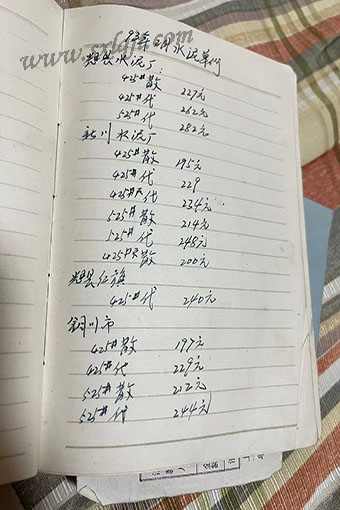 www.sxlqjf.com
水泥单价
水泥厂:
425#散 227元
425#代 262元
525#代 282元
水泥厂
425#散 195元
425#代 229
425#代 234元
525#散 214元
525#代 248元
425#散 200元
红旗
425#代 240元
铜川市
425#散 197元
425#代 229元
525#散 212元
525#代 244元